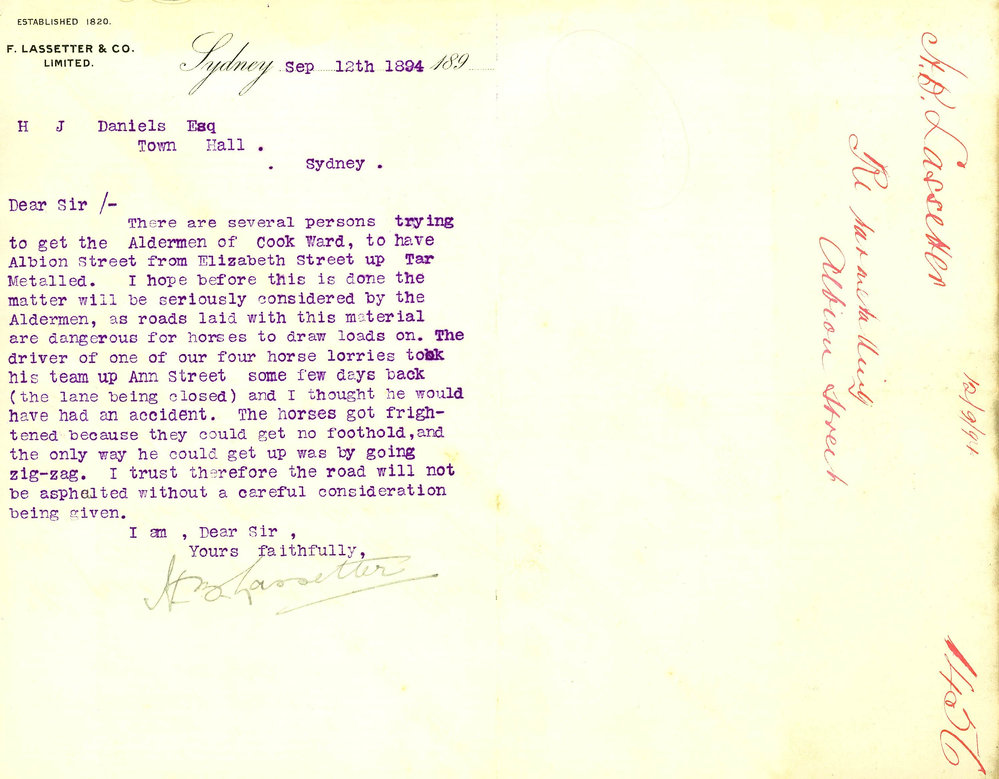 ESTABLISHED 1820.
F. LASSETTER & CO.
LIMITED.
Sydney Sep 12th 1894 189
H J Daniels Esq
Town Hall .
. Sydney .
Dear Sir /-
There are several persons trying
to get the Aldermen of Cook Ward, to have
Albion Street from Elizabeth Street up Tar
Metalled. I hope before this is done the
matter will be seriously considered by the
Aldermen, as roads laid with this material
are dangerous for horses to draw loads on. The
driver of one of our four horse lorries took
his team up Ann Street some few days back
(the lane being closed) and I thought he would
have had an accident. The horses got frigh-
tened because they could get no foothold,and
the only way he could get up was by going
zig-zag. I trust therefore the road will not
be asphalted without a careful consideration
being given.
I am , Dear Sir ,
Yours faithfully,
H B Lassetter
H.B. Lassetter
Re tarmetalling
Albion Street
12/9/94
1456